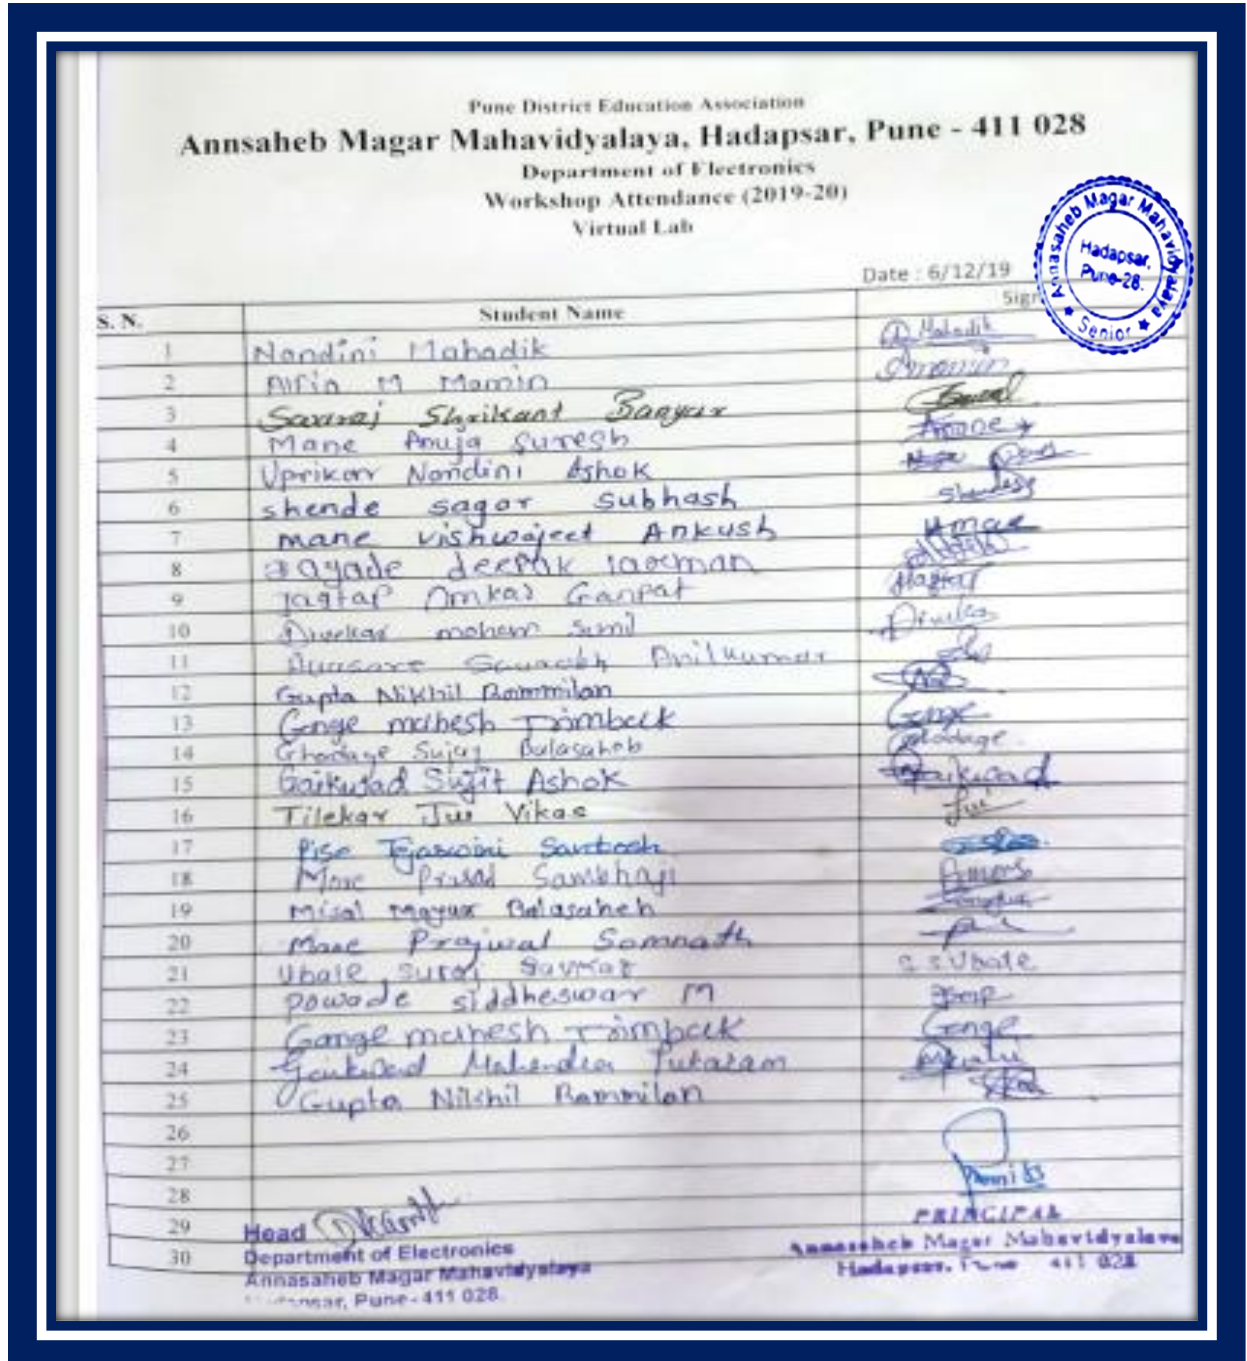 Pune District Education Association
Annsaheb Magar Mahavidyalaya, Hadapsar, Pune - 411 028
Department of Electronics
Workshop Attendance (2019-20)
Virtual Lab
Annasaheb Magar Mahavidyalaya
Hadapsar,
Pune-28.
★ Senior ★
Date : 6/12/19
S. N. Student Name Sign
1 Nandini Mahadik Mahadik
2 Alfin M Momin
3 Shrikant Bangar
4 Mane Anuja Suresh
5 Nandini Ashok
6 shende sagar subhash
7 mane vishwajeet Ankush
8 deepak
9 Jagtap Omkar Ganpat
10 Divekar
11 Saurabh Anilkumar
12 Gupta Nikhil Rammilan
13 Genge mahesh Trimbak Genge
14 Ghodage Balasaheb Ghodage
15 Gaikwad Sujit Ashok Gaikwad
16 Tilekar Jui Vikas Jui
17 Pise Tejaswini Santosh
18 More Prasad Sambhaji
19 Misal Mayur Balasaheb
20 Mane Prajwal Somnath
21 Ubale Suraj S S Ubale
22 powade siddheswar M
23 Gange mahesh Trimbak Genge
24 Gaikwad Mahendra Tukaram
25 Gupta Nikhil Rammilan
26
27
28
29
30
Head
Department of Electronics
Annasaheb Magar Mahavidyalaya
Hadapsar, Pune-411 028.
PRINCIPAL
Annasaheb Magar Mahavidyalaya
Hadapsar, Pune 411 028